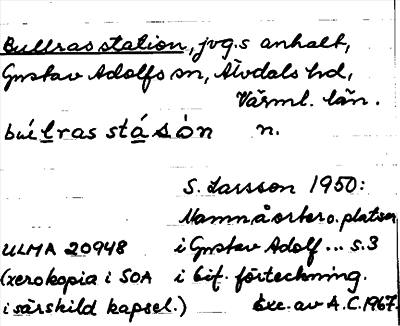 Bullras station, jvg.s anhalt,
Gustav Adolfs sn, Älvdals hd,
Värml. län.
bu̍lras stásòn n.
S. Larsson 1950:
Namn å orter o. platser
ULMA 20948 i Gustav Adolf ... s. 3
(xerokopia i SOA i bif. förteckning.
i särskild kapsel.) Exc. av A.C. 1967.